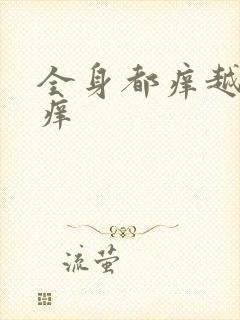 全身都痒越
痒
流萤